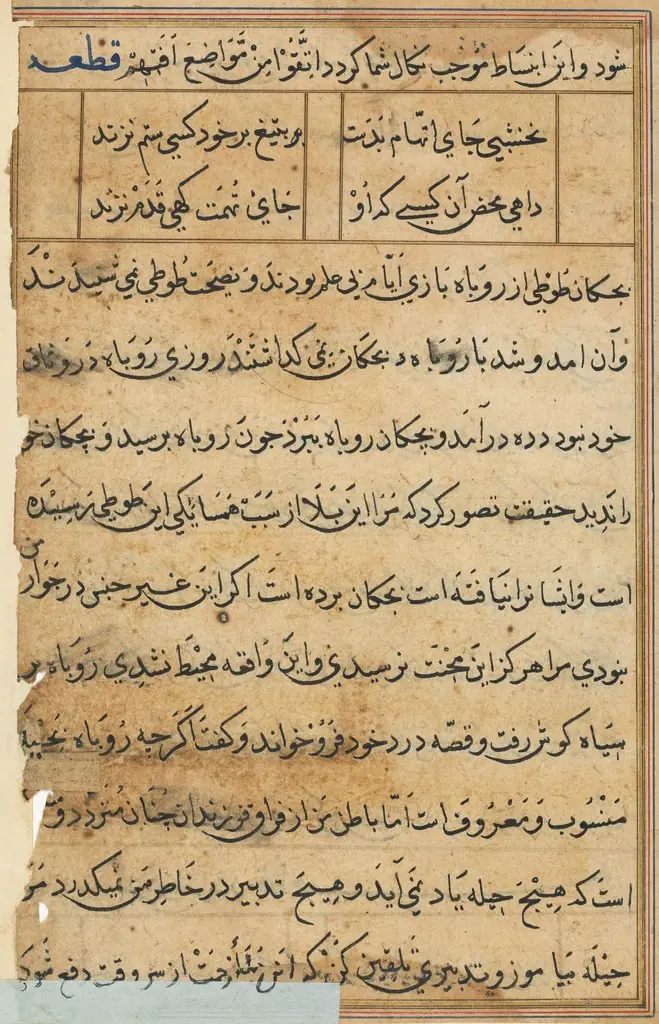 شود و این انبساط موجب نکال شما کردد اتَّقُوْا مِنْ مَّوَاضِعَ قطعه
نخشبی جای اتهام بدست بتیغ بر خود کسی ستم نزند
داهی محض آن کیسی که او جای تهمت کهی قدم نزند
بچکان طوطی از روباه بازی ایام بی علم بودند و نصیحت طوطی نمی شنیدند
وآن امد و شد با روباه بچکان نمی کداشتند روزی روباه در وثاق
خود نبود دده درآمد و بچکان روباه ببرد جون روباه برسید و بچکان خو
را ندید حقیقت تصور کرد که مرا این بلا از سبب همسایکی این طوطی رسیده
است و ایشانرا نیافته است بچکان برده است اکر این غیر جنس در جوار من
نبودی مرا هرکز این محنت نرسیدی و این واقعه محیط نشدی روباه بر
سیاه کوش رفت و قصه درد خود فرو خواند و کفت اکرجه روباه بحیله
منسوب و معروف است اما باطن من از فراق فرزندان چنان متردد و
است که هیج حیله یاد نمی آید و هیج تدبیر در خاطر من نمیکدرد مر
حیله بیاموز و تدبیری تلقین کن که این زحمت از سر وقت دفع شود